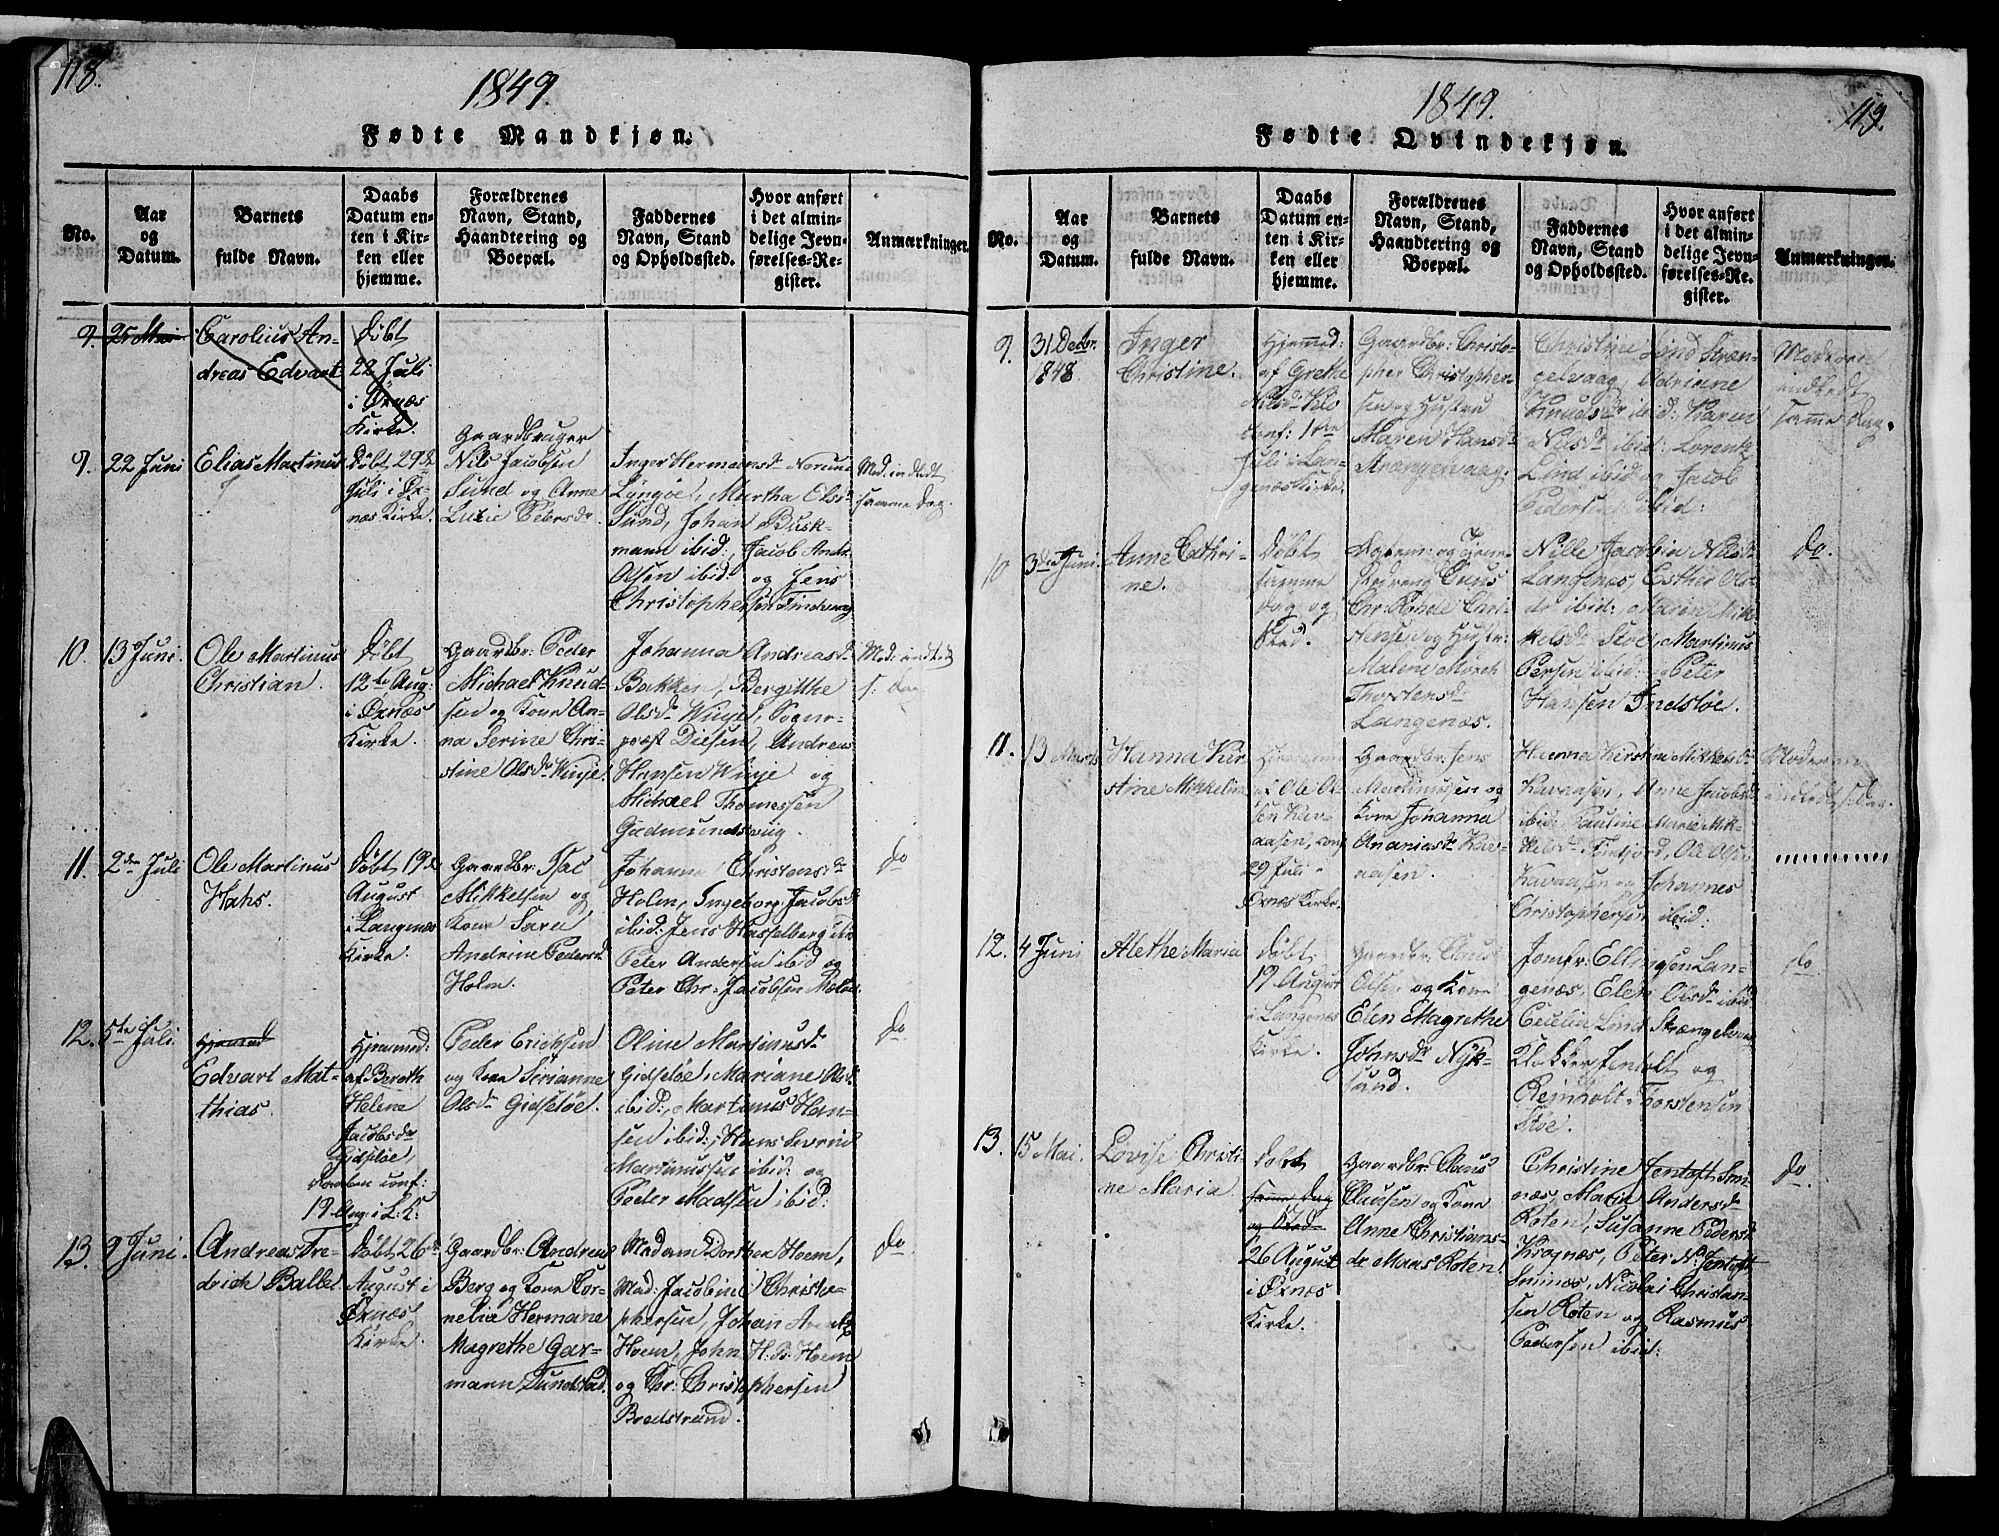 118.
1849.
Fødte Mandkjøn.
No.
Aar
og
Datum.
Barnets
fulde Navn.
Daabs
Datum en-
ten i Kir-
ken eller
hjemme.
Forældrenes
Navn, Stand,
Haandtering og
Boepæl.
Faddernes
Navn, Stand
og Opholdssted.
Hvor anført
i det almin-
delige Jevn-
førelses-Re-
gister.
Anmærkninger.
9.
25 Mai
Carolius An-
dreas Edvart
Døbt
22 Juli
i Øxnæs
Kirke.
9.
22 Juni
Elias Martinus
Døbt 29de
Juli i Øx-
næs Kirke.
Gaardbruger
Nils Jacobsen
Sund og Anne
Lucie Petersdr
Inger Hermansdr
Lyngøe, Martha Olsdr
Sund, Johan Busk-
mann ibid:, Jacob Andr.
Olsen ibid: og Jens
Christophersen Tindvaag
Mod. indledt
samme Dag.
10.
13 Juni.
Ole Martinus
Christian.
Døbt
12te Aug:
i Øxnæs
Kirke.
Gaardbr: Peder
Michael Knud-
sen og Kone An-
na Serine Chri-
stine Olsdr Winje.
Johanna Andreasdr
Bakken, Bergitthe
Olsdr Winje, Sogne-
præst Diesen, Andreas
Hansen Winje og
Michael Thomessen
Gudmundsvig.
Mod: indledt
s: Dag
11.
2den Juli
Ole Martinus
Hans.
Døbt 19de
August
i Langenæs
Kirke.
Gaardbr: Isac
Mikkelsen og
Kone Sara
Andrine Pedersdr
Holm.
Johanna Christensdr
Holm, Ingeborg Jacobsdr
ibid: Jens Hasselberg ibid
Peter Andersen ibid og
Peter Chr: Jacobsen
Do
12.
5te Juli.
Hjemmed
Edvart Mat-
thias.
Hjemmed:
af Bereth
Heline
Jacobsdr
Gidsløe,
Daaben conf:
19 Aug: i L: K:
Peder Erichsen
og Kone Serianne
Olsdr Gidsløe.
Oline Martinusdr
Gidsløe, Mariane Olsdr
ibid:, Martinus Han-
sen ibid:, Hans Severin
Martinussen ibid: og
Peder Madsen ibid:
Do.
13.
9 Juni.
Andreas Fre-
drich Balle.
Døbt 26de
August i
Øxnæs
Kirke.
Gaardbr: Andreas
Berg og Kone Cor-
nelia Hermane
Magrethe Gar-
mann, Tundstad.
Madam Dorthea Hoem,
Mad: Jacobine Christo-
phersen, Johan Arentz
Hoem, John H. B. Hoem
og Chr: Christophersen
Bredstrand.
Do.
119.
1849.
Fødte Qvindekjøn.
No.
Aar
og
Datum.
Barnets
fulde Navn.
Daabs
Datum en-
ten i Kir-
ken eller
hjemme.
Forældrenes
Navn, Stand,
Haandtering og
Boepæl.
Faddernes
Navn, Stand
og Opholdssted.
Hvor anført
i det almin-
delige Jevn-
førelses-Re-
gister.
Anmærkninger.
9.
31 Decbr.
1848.
Inger
Christine.
Hjemmed:
af Grethe
Nilsdr
conf: 1ste
Juli i Lan-
genæs Kirke.
Gaardbr: Christo-
pher Christopher-
sen og Hustru
Maren Hansdr
Strængelvaag.
Christine Lind Stræn-
gelvaag, Adriane
Knudsdr ibid: Karen
Nilsdr ibid: Lorentz
Lind ibid og Jacob
Pedersen ibid:
Moderen
indledt
samme Dag.
10
3die Juni
Anne Cathri-
ne.
Døbt
samme
Dag og
Sted.
Claus
Chr: Rohde Chri-
stensen og Hustr:
Malene Mørch
Thorstensdr
Langenæs.
Nille Jacobin Nilsdr
Langenæs, Esther Ols-
dr ibid: Maren Mik-
kelsdr Støe, Martinus
Persen ibid: og Peter
Hansen Indstøe.
Do.
11.
13 Marts
Hanna Kir-
stine Mikkeline
Hjemme
af Ole Ol-
sen Kav-
aasen, conf
29 Juli i
Øxnæs Kirke.
Gaardbr: Jens
Martinussen og
Kone Johanna
Ananiasdr Kav-
aasen.
Hanna Kirstine Mikkelsdr
Kavaasen, Anne Jacobsdr
ibid: Pauline Marie Mik-
kelsdr Tinfjord, Ole Olsen
Kavaasen og Johannes
Christophersen ibid:
Moderen
indledt s: Dag.
12.
4 Juni
Alethe Maria
Døbt
19 August
i Langenæs
Kirke.
Gaardbr: Claus
Olsen og Kone
Elen Magrethe
Johnsdr Nyk-
sund.
Jomfr: Ellingsen Lan-
genæs, Elen Olsdr ibid
Cecelia Lind Strængelvaag
Klokker Jentoft og
Reinholt Thorstensen
Støe.
Do
13.
15 Mai.
Lovise Christi-
ne Maria.
Døbt
samme Dag
og Sted
26 August
i Øxnæs
Kirke.
Gaardbr: Claus
Clausen og Kone
Anne Christians-
dr Maas Roten.
Christine Jentoft Smi-
næs, Maria Andersdr
Roten, Susanne Pedersdr
Krognæs, Peter N. Jentoft
Sminæs, Nicolai Christian-
sen Roten og Rasmus
Pedersen ibid:
Do.